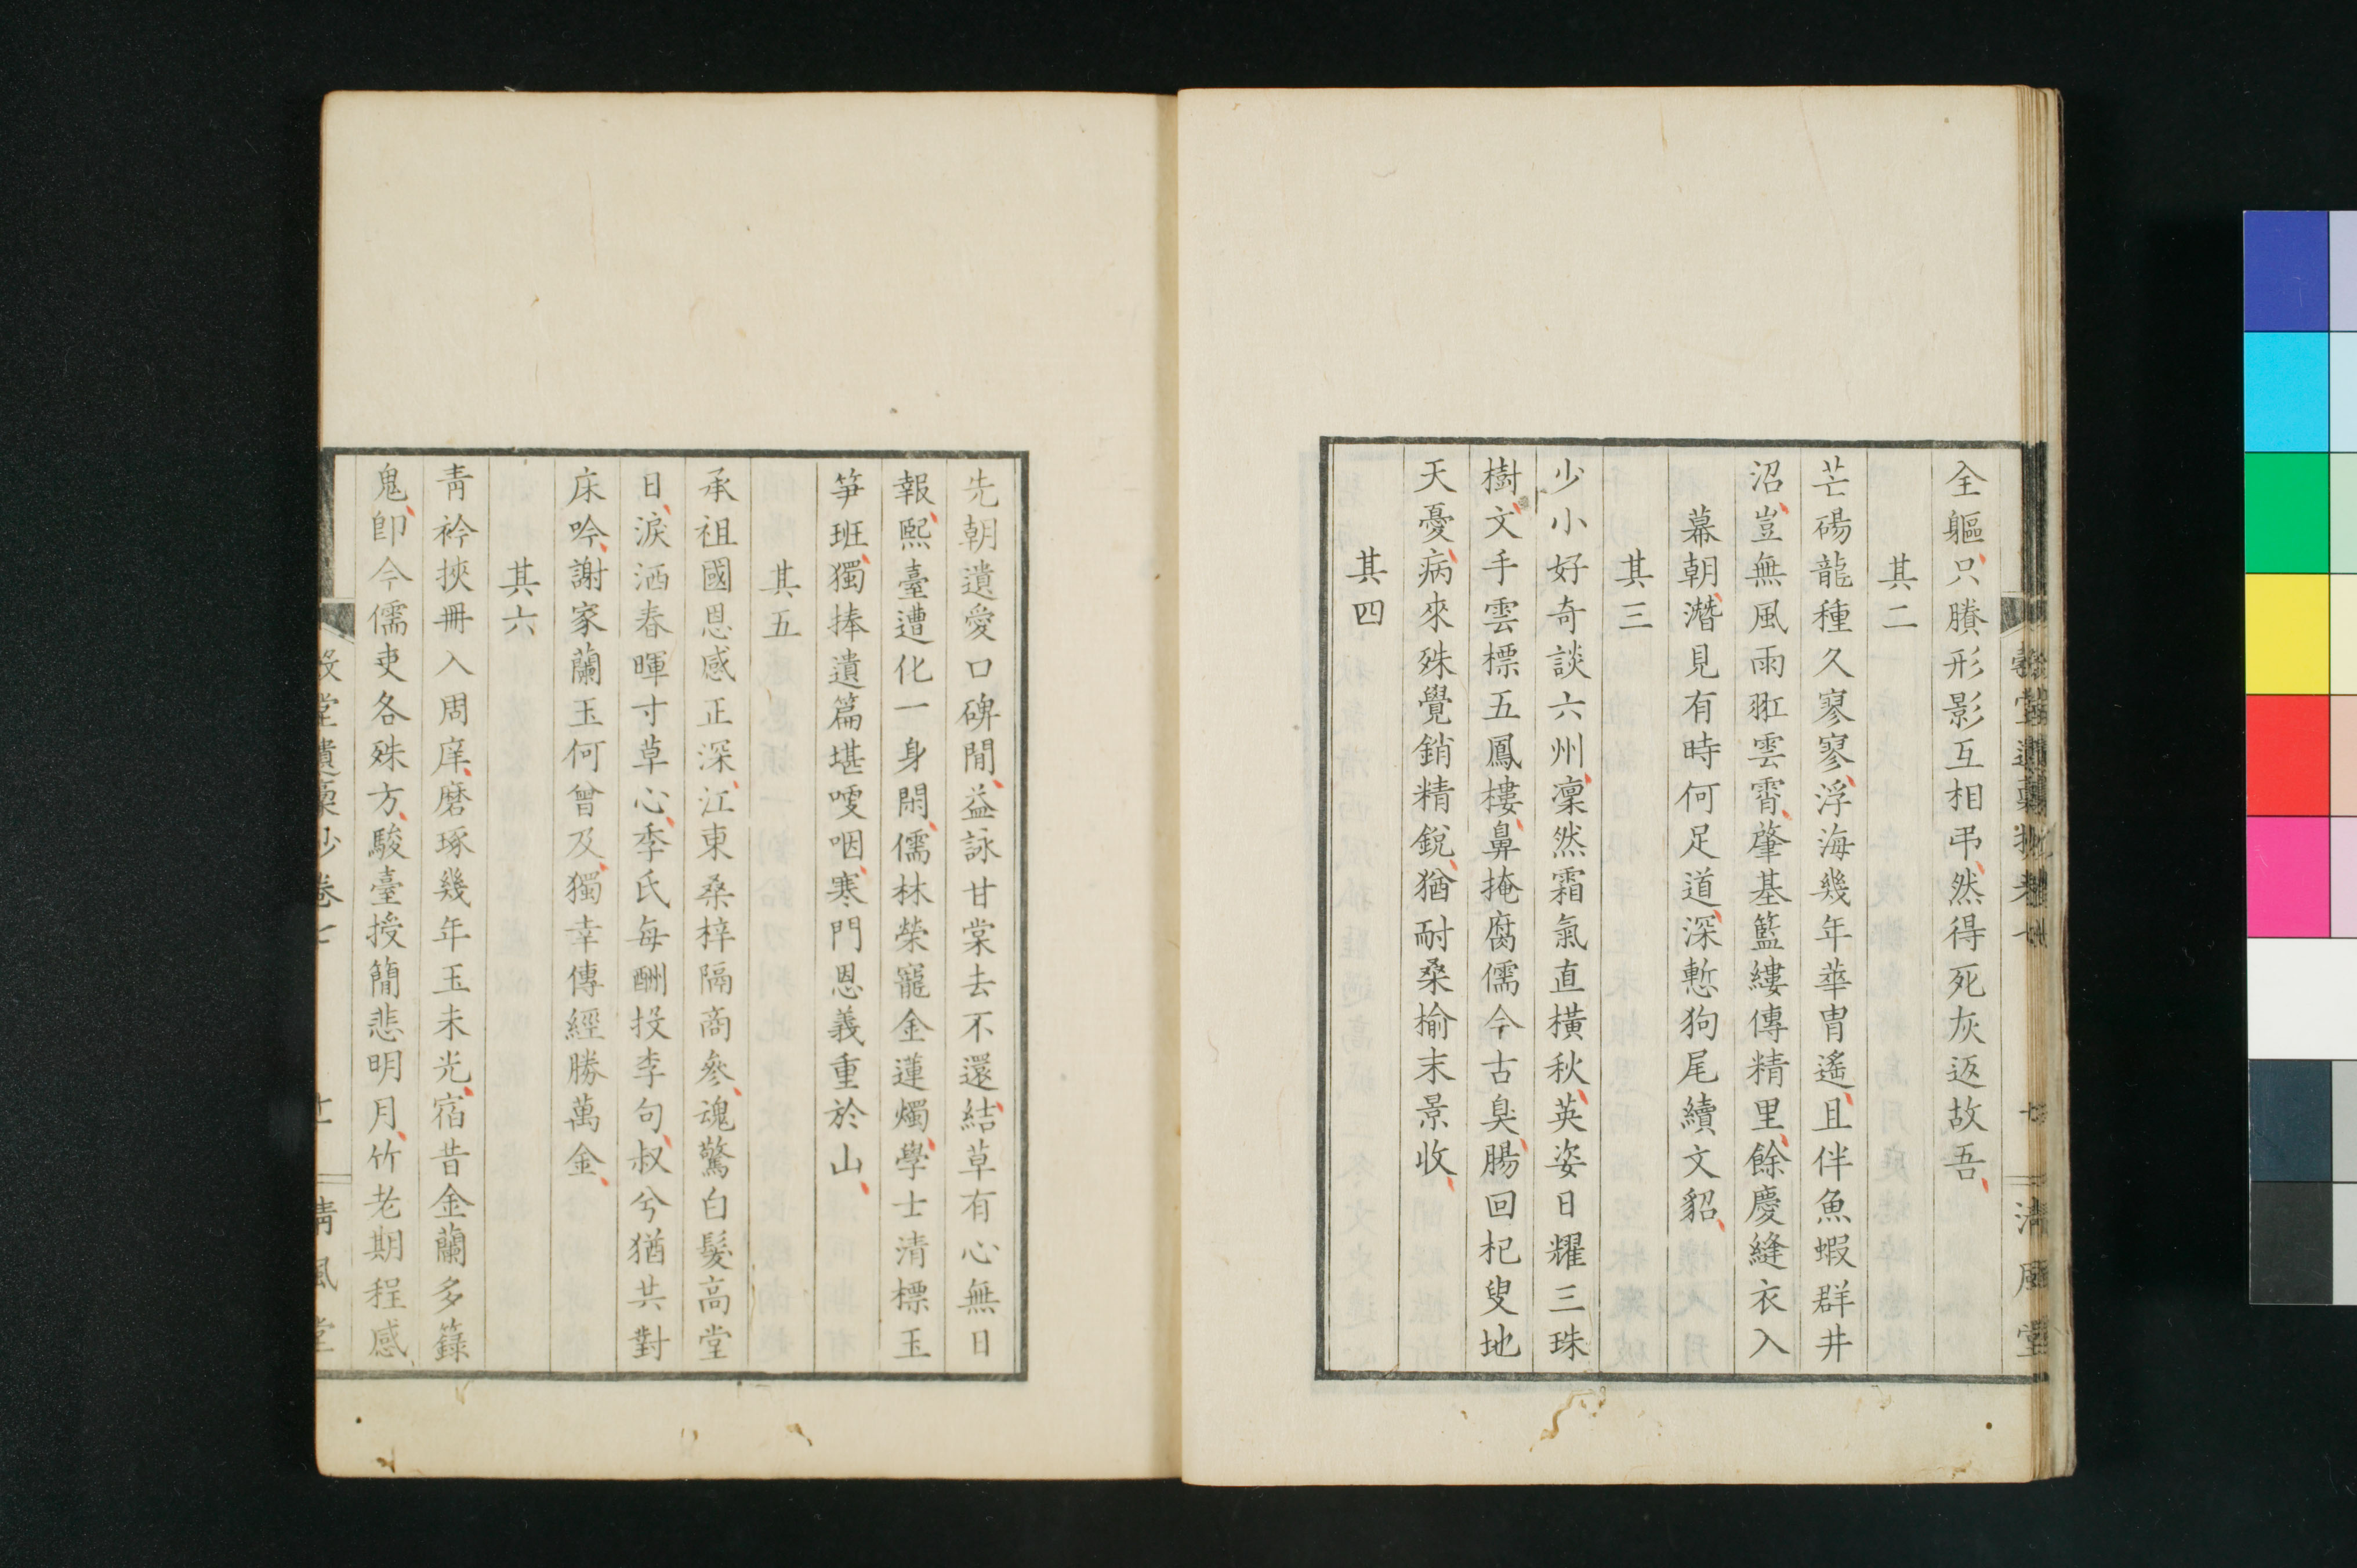 全軀只賸形影互相弔然得死灰返故吾
其二
芒碭龍種久寥寥浮海幾年華冑遙且伴魚蝦群井
沼豈無風雨駈雲霄肇基籃縷傳精里餘慶縫衣入
幕朝潛見有時何足道深慙狗尾續文貂
其三
少小好奇談六州凜然霜氣直橫秋英姿日耀三珠
樹文手雲標五鳳樓鼻掩腐儒今古臭腸回杞叟地
天憂病來殊覺銷精銳猶耐桑榆末景收
其四
先朝遺愛口碑間益詠甘棠去不還結草有心無日
報熙臺遭化一身閑儒林榮寵金蓮燭學士清標玉
笋班獨捧遺篇堪哽咽寒門恩義重於山
其五
承祖國恩感正深江東桑梓隔商參魂驚白髮高堂
日淚洒春暉寸草心季氏每酬投李句叔兮猶共對
床吟謝家蘭玉何曾及獨幸傳經勝萬金
其六
青衿挾冊入周庠磨琢幾年玉未光宿昔金蘭多籙
鬼卽今儒吏各殊方駿臺授簡悲明月竹老期程感
堂遺稾抄卷七
清風堂